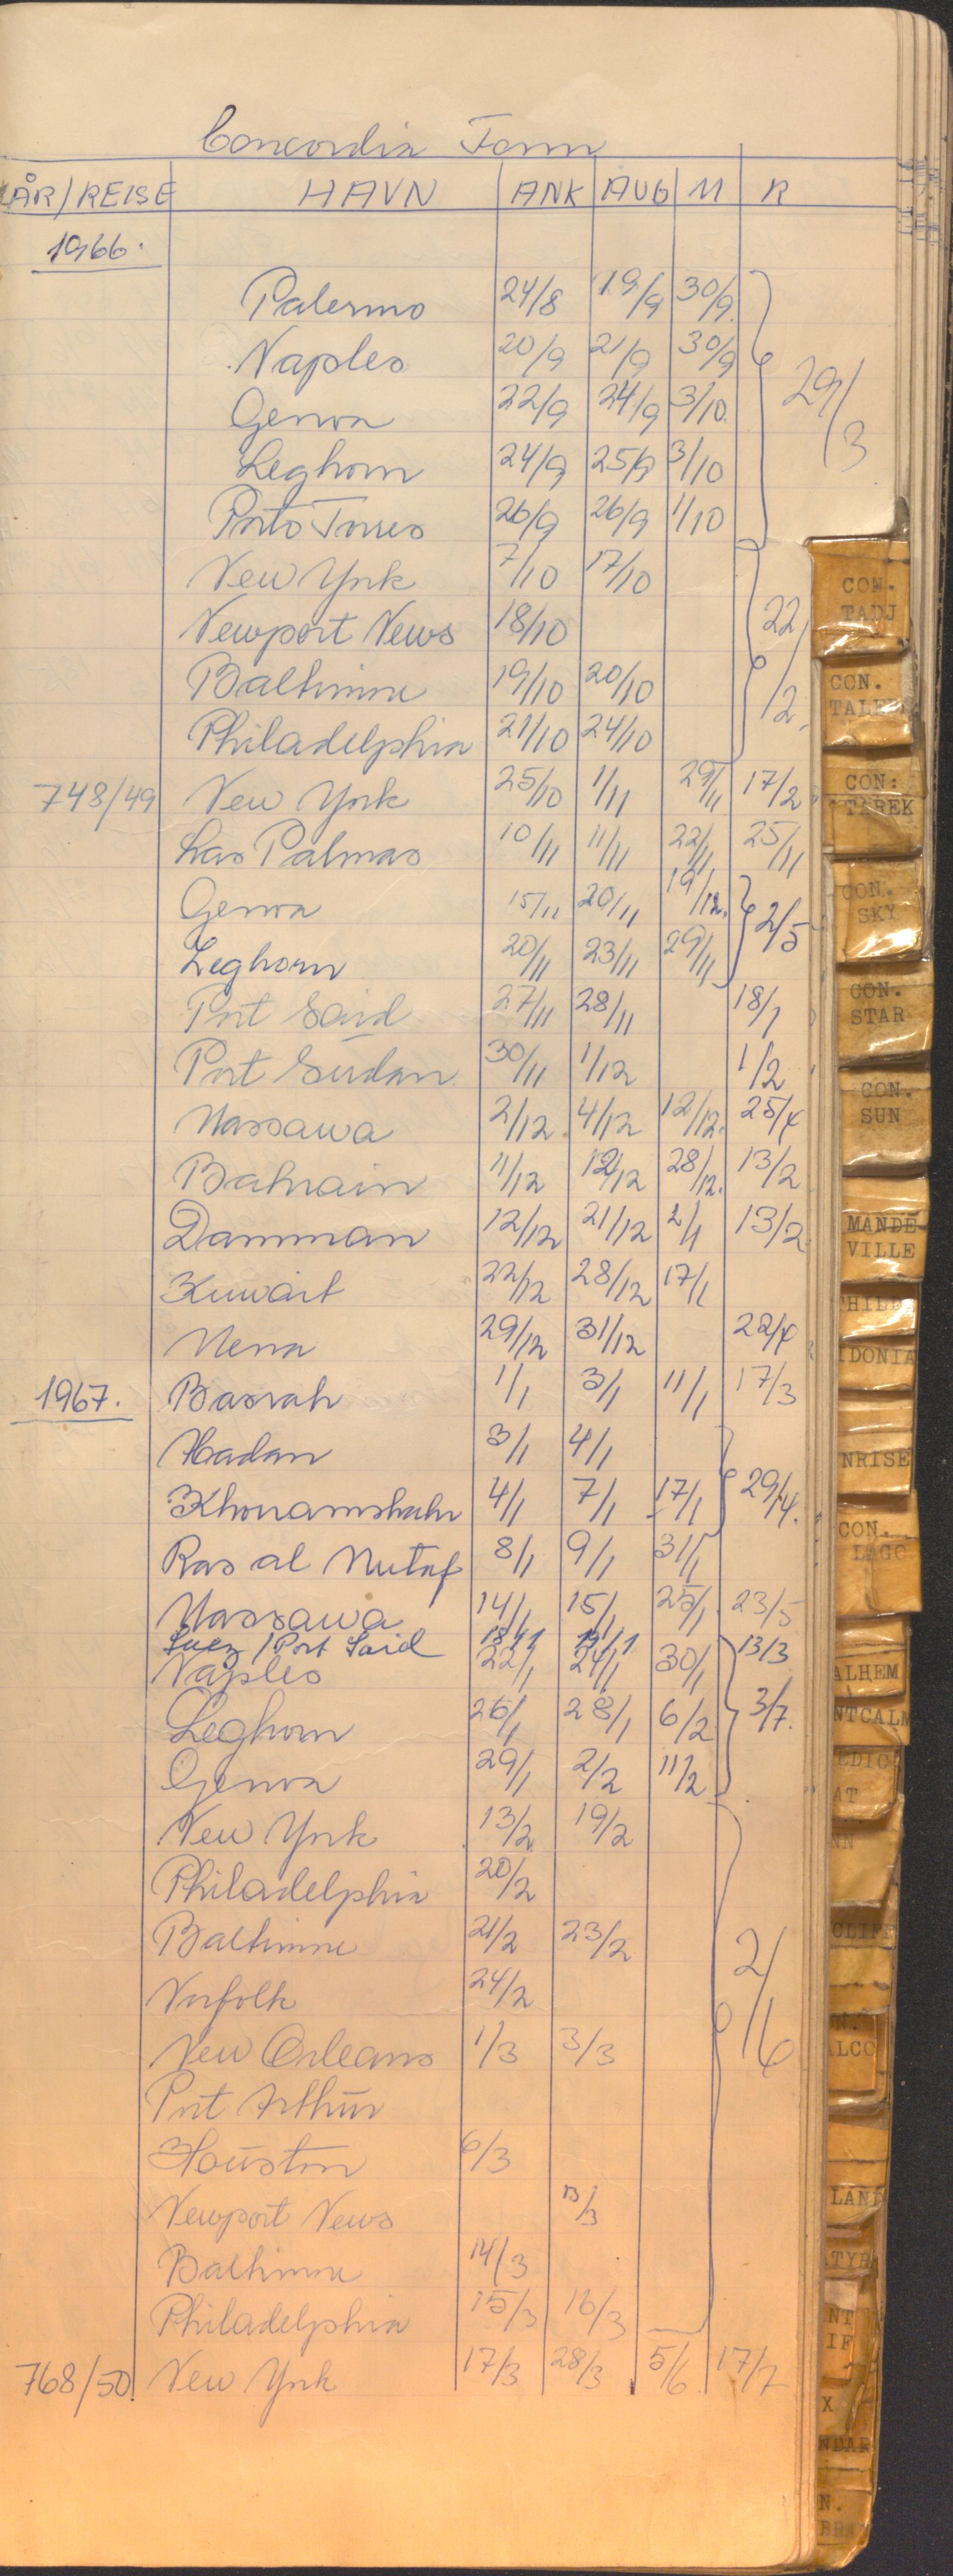 Concordia Fonn
ÅR/REISE HAVN ANK AUG M R
1966.
Palermo 24/8 19/9 30/9.
Naples 20/9 21/9 30/9
Genoa 22/9 24/9 3/10. 29/3
Leghorn 24/9 25/9 3/10
Porto Torres 26/9 26/9 1/10
New York 7/10 17/10
Newport News 18/10 22/12.
Baltimore 19/10 20/10
Philadelphia 21/10 24/10
748/49 New York 25/10 1/11 29/11 17/2
Las Palmas 10/11 11/11 22/11 25/11
Genoa 15/11 20/11 19/12. 2/5
Leghorn 20/11 23/11 29/11
Port Said 27/11 28/11 18/1
Port Sudan 30/11 1/12 1/2
Massawa 2/12 4/12 12/12. 25/4
Bahrain 11/12 12/12 28/12. 13/2
Damman 12/12 21/12 2/1 13/2
Kuwait 22/12 28/12 17/1
Mena 29/12 31/12 22/4
1967. Basrah 1/1 3/1 11/1 17/3
Abadan 3/1 4/1
Khorramshahr 4/1 7/1 17/1 29/4.
Ras al Mutaf 8/1 9/1 31/1
Massawa 14/1 15/1 25/1 23/5
Suez / Port Said 18/1 19/1 13/3
Naples 22/1 24/1 30/1
Leghorn 26/1 28/1 6/2 3/7.
Genoa 29/1 2/2 11/2
New York 13/2 19/2
Philadelphia 20/2
Baltimore 21/2 23/2
Norfolk 24/2 2/6
New Orleans 1/3 3/3
Port Arthur
Houston 6/3
Newport News 13/3
Baltimore 14/3
Philadelphia 15/3 16/3
768/50 New York 17/3 28/3 5/6 17/7
CON.
TADJ
CON.
TALE
CON:
TAREK
CON.
SKY
CON.
STAR
CON.
SUN
MANDE-
VILLE
HILL
IDONIA
NRISE
CON.
LAGO
ALHEM
NTCALM
EDIC
AT
NN
CLIFF
N.
ALCO
LAND
ATYR
NT
IF
X
NDAR
N.